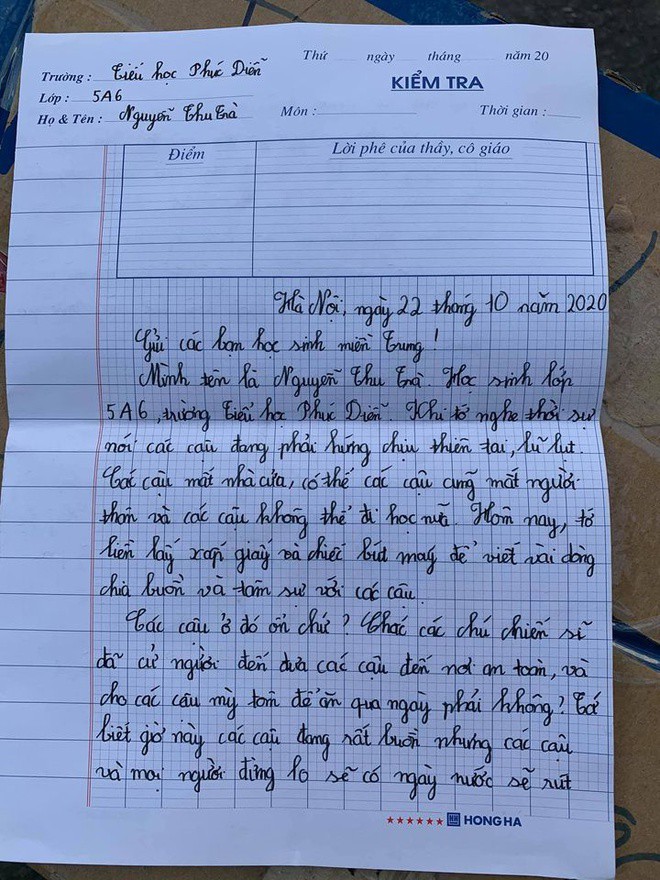 Thứ ngày tháng năm 20
Trường : Tiểu học Phúc Diễn
KIỂM TRA
Lớp : 5A6
Họ & Tên : Nguyễn Thu Trà Môn : Thời gian :
Điểm Lời phê của thầy, cô giáo
Hà Nội, ngày 22 tháng 10 năm 2020
Gửi các bạn học sinh miền Trung!
Mình tên là Nguyễn Thu Trà. Học sinh lớp
5A6, trường Tiểu học Phúc Diễn. Khi tớ nghe thời sự
nơi các cậu đang phải hứng chịu thiên tai, lũ lụt.
Các cậu mất nhà cửa, có thể các cậu cũng mất người
thân và các cậu không thể đi học nữa. Hôm nay, tớ
liền lấy xấp giấy và chiếc bút máy để viết vài dòng
chia buồn và tâm sự với các cậu.
Các cậu ở đó ổn chứ? Chắc các chú chiến sĩ
đã cử người đến đưa các cậu đến nơi an toàn, và
cho các cậu mỳ tôm để ăn qua ngày phải không? Tớ
biết giờ này các cậu đang rất buồn nhưng các cậu
và mọi người đừng lo sẽ có ngày nước sẽ rút
HONG HA